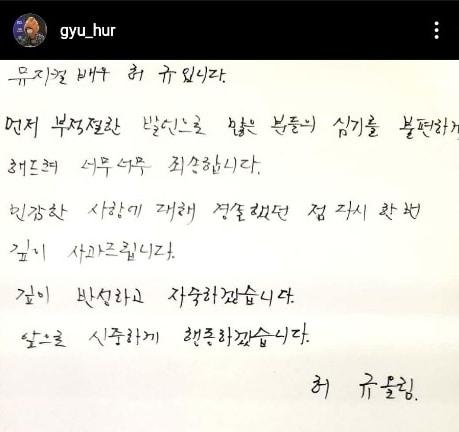 gyu_hur
뮤지컬 배우 허 규입니다.
먼저 부적절한 발언으로 많은 분들의 심기를 불편하게
해드려 너무너무 죄송합니다.
민감한 사항에 대해 경솔했던 점 다시 한 번
깊이 사과드립니다.
깊이 반성하고 자숙하겠습니다.
앞으로 신중하게 행동하겠습니다.
허 규 올림.